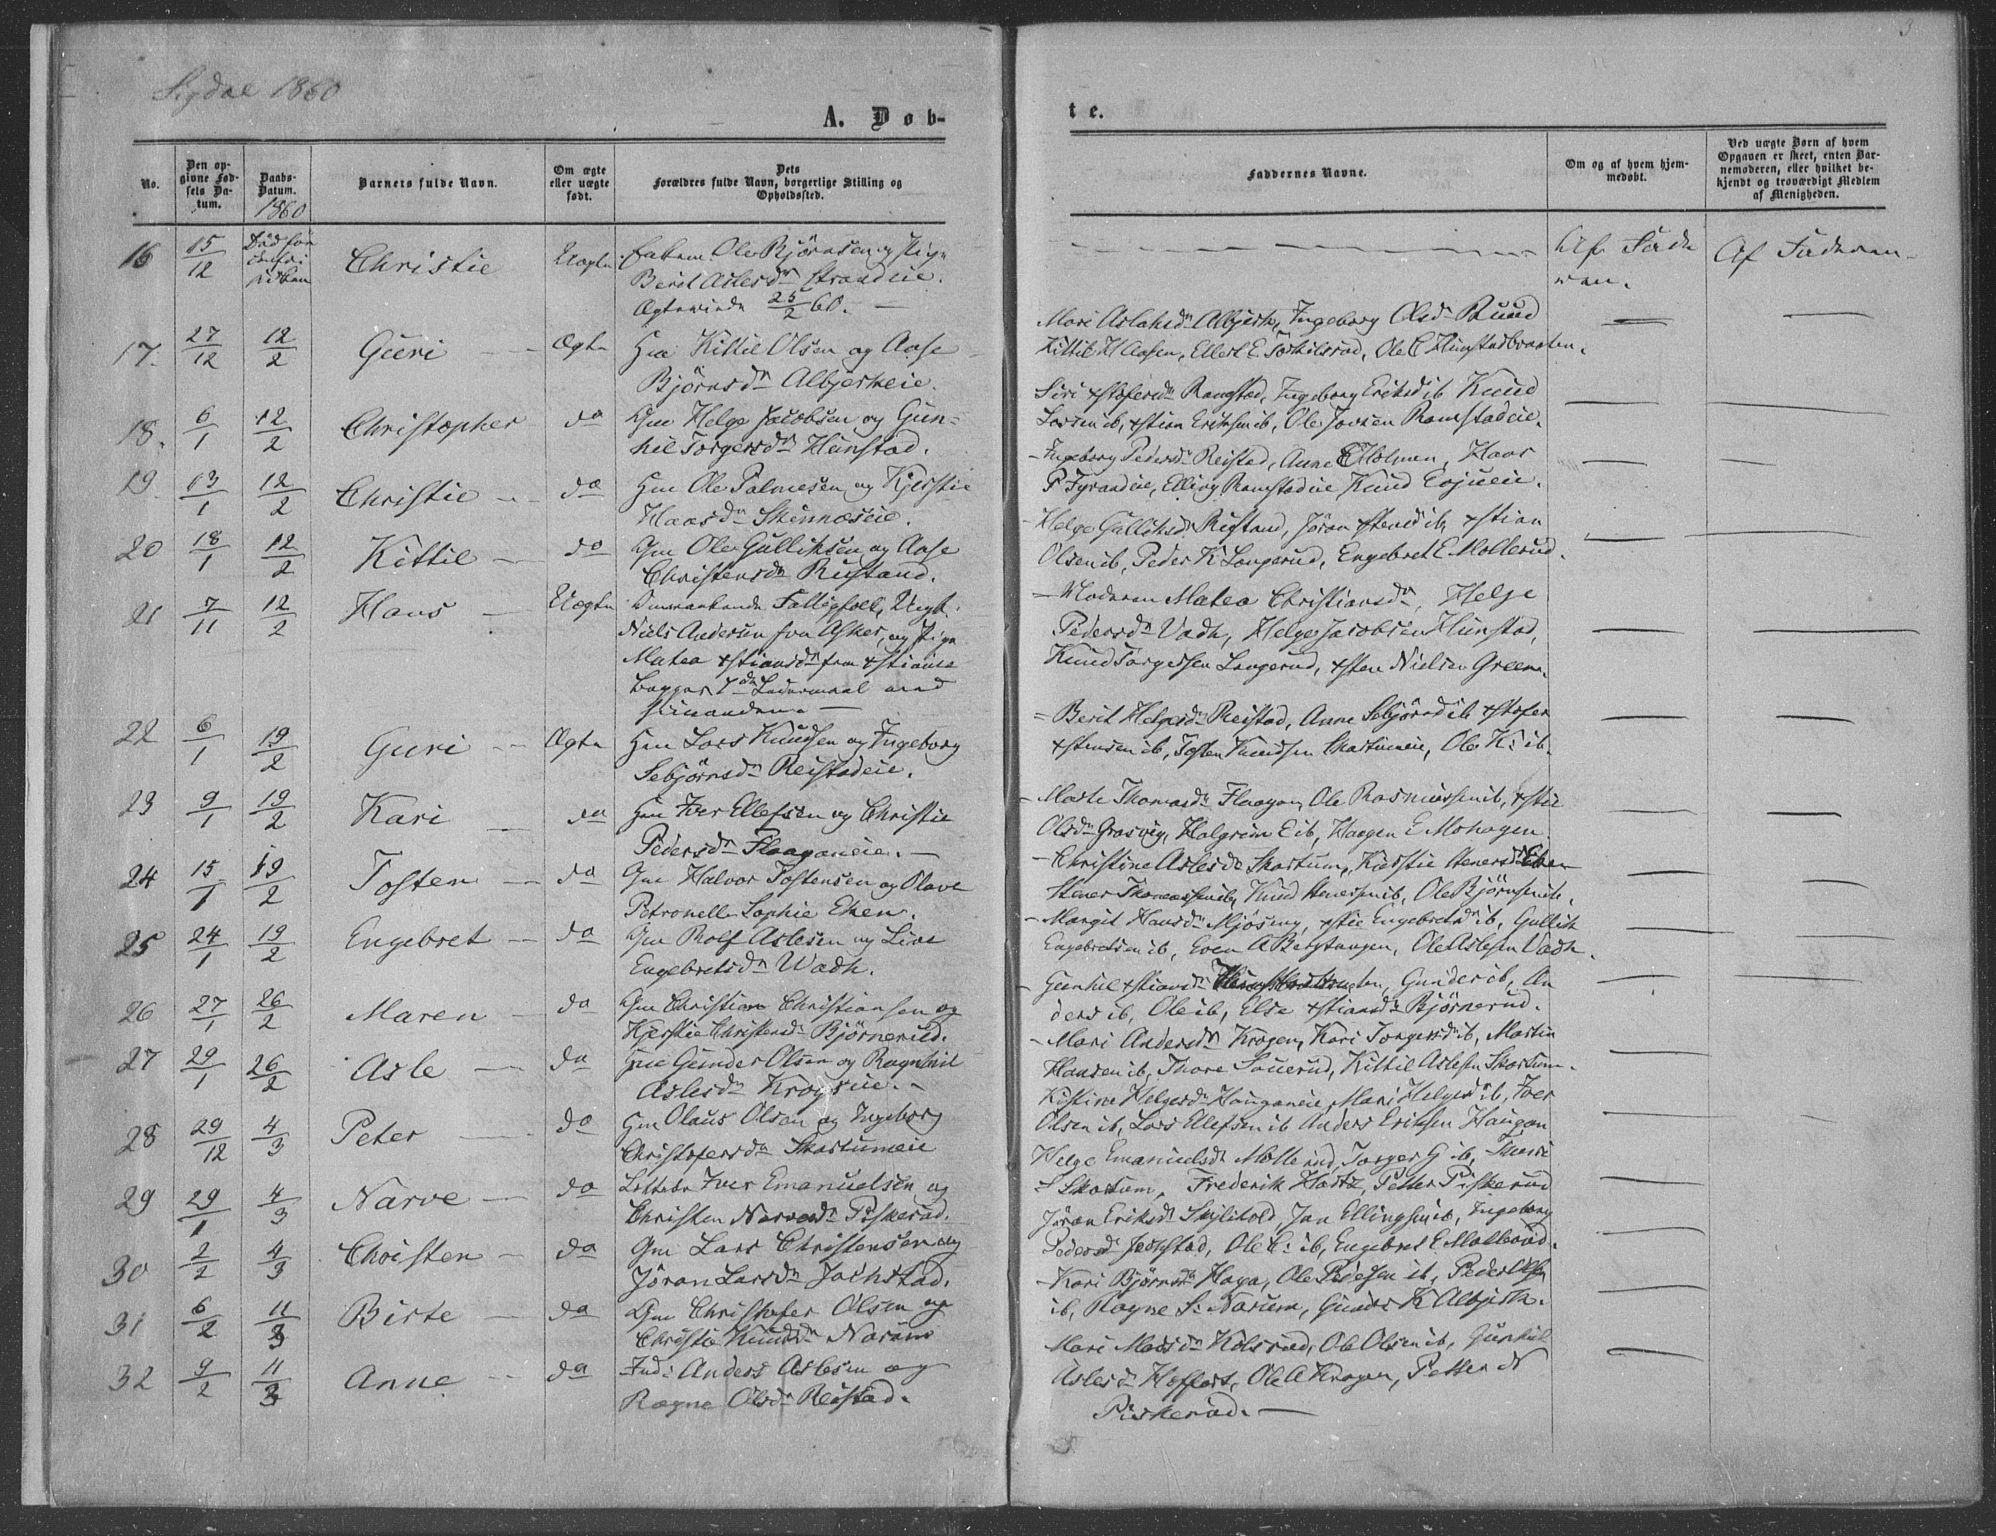 3
Sigdal 1860
A. Døb-
te.
No.
Den op-
givne Fød-
sels Da-
tum.
Daabs-
Datum.
1860
Barnets fulde Navn.
Om ægte
eller uægte
født.
Dets
Forældres fulde Navn, borgerlige Stilling og
Opholdssted.
Faddernes Navne.
Om og af hvem hjem-
medøbt.
Ved uægte Børn af hvem
Opgaven er skeet, enten Bar-
nemoderen, eller hvilket be-
kjendt og troværdigt Medlem
af Menigheden.
16 15/12 Død før Christie Uægte Ole Bjørnsen og Pige
Berit Aslesdr Strandeie.
25/2 60. —
Af Fade
ren.
Af Faderen
17. 27/12 12/2 Guri Ægte Hm Kittil Olsen og Aase
Bjørnsdr Albjerkeie.
Mari Aslaksdr Albjerk, Ingeborg Olsdr Ruud
Kittil H Aasen, Ellert E Torkilsrud, Ole C Hunstadbraaten.
18. 6/1 12/2 Christopher do Gm Helge Jacobsen og Gun-
hil Torgersdr Hunstad.
Siri xstofersdr Ramstad, Ingeborg Eriksd ib Knud
Larsen ib, xstian Eriksen ib, Ole Joversen Ramstadeie.
19. 13/1 12/2 Christie do Hm Ole Palmesen og Kjerstie
Haasdr Skinnæseie.
Ingeborg Pedersdr Reistad, Anne C Holmen, Haavr
P Fyrandeie, Elling Ramstadeie Knud
20 18/1 12/2 Kittil do Gm Ole Gulliksen og Aase
Christensdr Rustand.
Helge Gulliksdr Rustand, Jøran xstensd ib, xstian
Olsen ib, Peder K Langerud, Engebret E Mollerud.
21 7/11 12/2 Hans Uægte Omvankende Fattigfolk, Ungk.
Niels Andersen fra Asker, og Pige
Matea xstiansdr fra xstiania
Begges 1de Leiermaal med
hinanden. —
Moderen Matea Christiansdr, Helge
Pedersdr Vadh, Helge Jacobsen Hunstad,
Knud Torgersen Langerud, xsten Nielsen Green.
22 6/1 19/2 Guri Ægte Hm Lars Knudsen og Ingeborg
Sebjørnsdr Reistadeie.
Berit Helgesdr Reistad, Anne Sebjørnsd ib xstofer
xstensen ib, Tosten Knudsen Skartumeie, Ole K: ib.
23 9/1 19/2 Kari do Hm Iver Ellefsen og Christie
Pedersdr Flaaganeie. —
Marte Thomasdr Flaagan, Ole Rasmussen ib, xstie
Olsdr Grasvig, Halgrim E ib, Haagen E Mohagen.
24 15/1 19/2 Tosten do Gm Halvor Tostensen og Olave
Petronelle Sophie Eken.
Christine Aslesdr Skartum, Kirstie Stenersdr Eken
Stener Thomassen ib, Knud Stenersen ib, Ole Bjørnsen ib.
25 24/1 19/2 Engebret do Gm Rolf Aslesen og Live
Engebretsdr Wadh.
Margit Hansdr Mjøseng, xstie Engebretsdr ib, Gullik
Engebretsen ib, Even A Bergstangen, Ole Aslesen Vadh.
26 27/1 26/2 Maren do Gm Christian Christiansen og
Kjerstie Christensdr Bjørnerud.
Gunhil xstiansdr Gunder ib, An
ders ib, Ole ib, Else xstiansdr Bjørnerud.
27 29/1 26/2 Asle do Hm Gunder Olsen og Ragnhil
Aslesdr Krogseie.
Mari Andersdr Krogen, Kari Torgersdr ib, Martin
Hansen ib, Thore Souerud, Kittil Aslesen Skartum.
28 29/12 4/3 Peter do Hm Olaus Olsen og Ingeborg
Christofersdr Skartumeie
Kistine Helgesdr Hauganeie Mari Helgesdr ib, Iver
Olsen ib, Lars Ellefsen ib Anders Eriksen Haugan
29 29/1 4/3 Narve do Iver Emanuelsen og
Christen Narvesdr Piskerud.
Helge Emanuelsdr Mollerud, Torger G ib,
S Skartum, Frederik Hartz, Petter Piskerud
30 2/2 4/3 Christen do Gm Lars Christensen og
Jøran Larsdr Jochstad.
Jøran Eriksdr Jan Ellingsen ib, Ingeborg
Pedersdr Jochstad, Ole C: ib, Engebret E Mollerud.
31 6/2 11/3 Birte do Gm Christofer Olsen og
Christie Knudsdr Narum
Kari Bjørnsdr Haga, Ole ib, Peder Olsen
ib, Ragne S: Narum, Gunder K Albjerk.
32 9/2 11/3 Anne do Ind: Anders Aslesen og
Ragne Olsdr Reistad.
Mari Madsdr Kolsrud, Ole Olsen ib, Gunhil
Aslesdr Hoffart, Ole A Krogen, Petter N
Piskerud. —